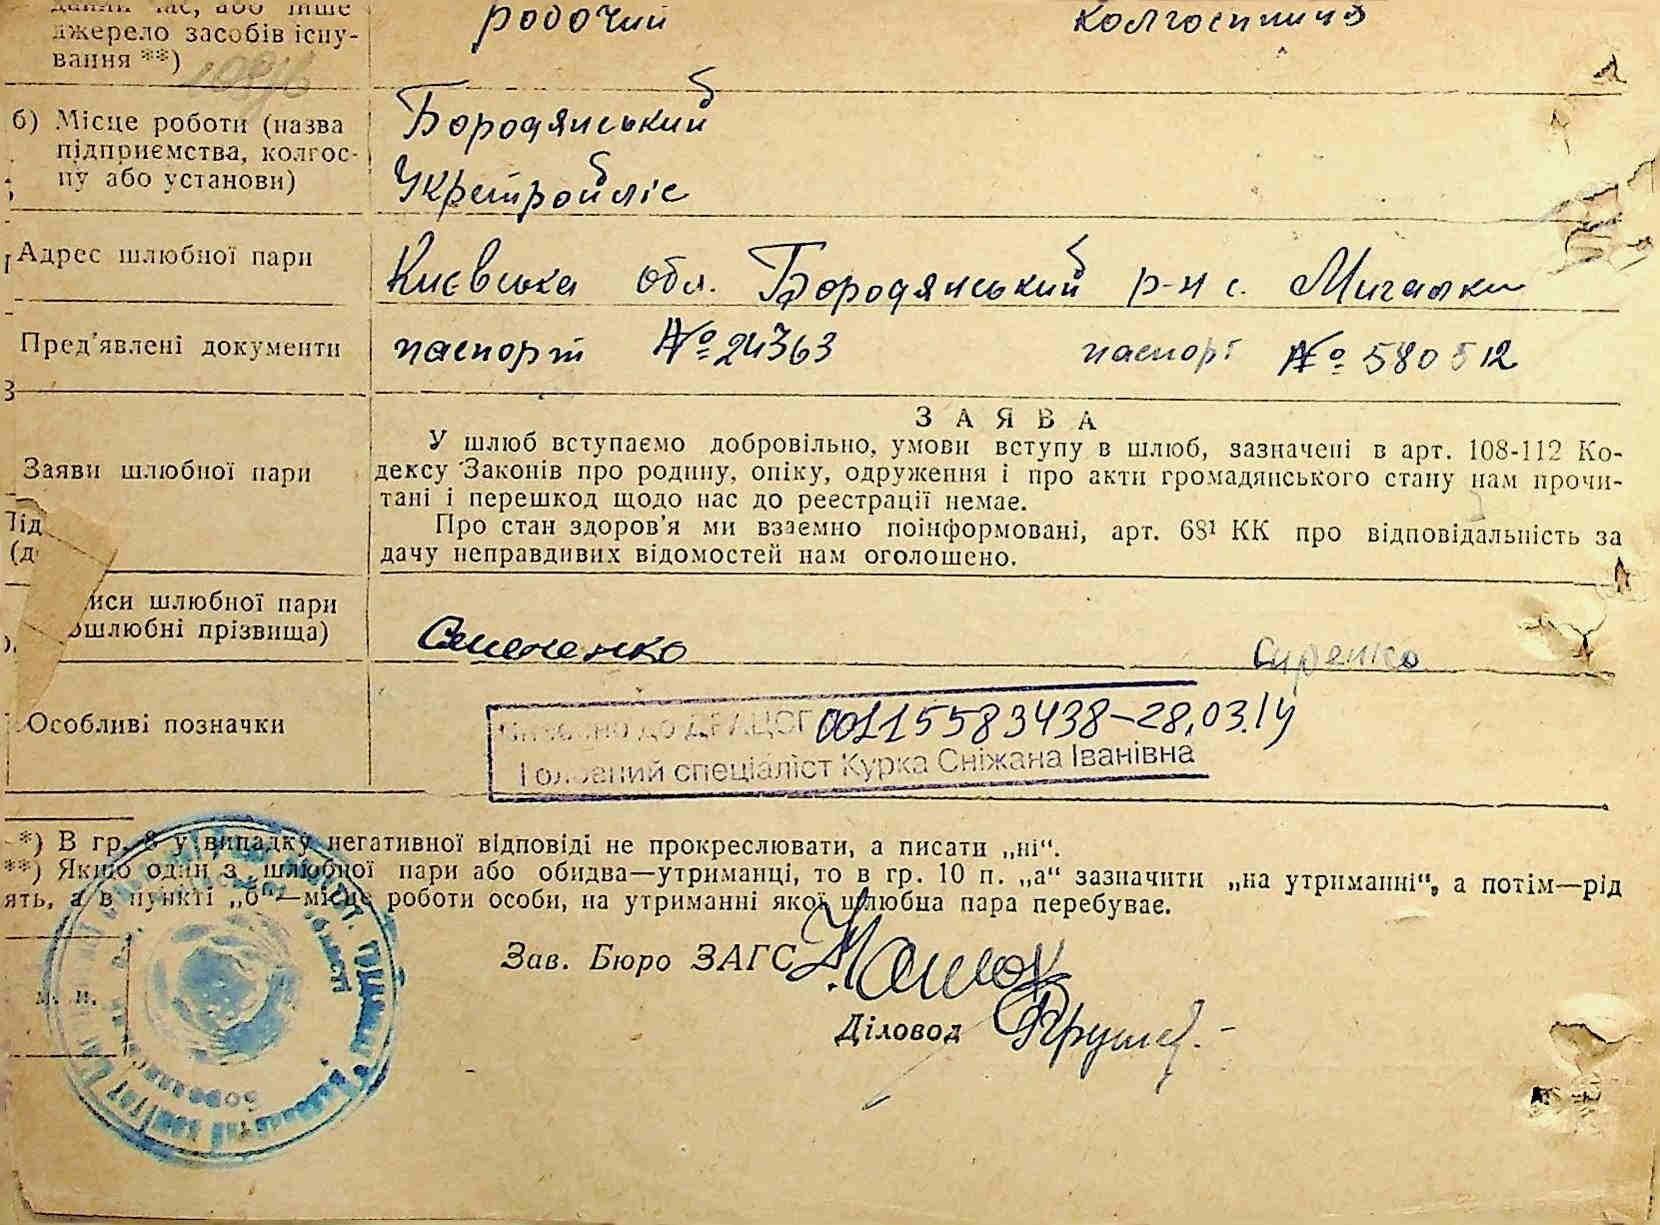 джерело засобів існу-
вання **)
робочий колгоспниця
б) Місце роботи (назва
підприємства, колгос-
пу або установи)
Бородянський
Укрстройліс
Адрес шлюбної пари
Києвська обл. Бородянський р-н с. Мигалки
Пред'явлені документи
паспорт № 24363 паспорт № 580512
Заяви шлюбної пари
ЗАЯВА
У шлюб вступаємо добровільно, умови вступу в шлюб, зазначені в арт. 108-112 Ко-
дексу Законів про родину, опіку, одруження і про акти громадянського стану нам прочи-
тані і перешкод щодо нас до реестрації немає.
Про стан здоров'я ми взаємно поінформовані, арт. 68¹ КК про відповідальність за
дачу неправдивих відомостей нам оголошено.
иси шлюбної пари
ошлюбні прізвища)
Семененко
Особливі позначки
до ДРАЦСГ 00115583438-28.03.14
Головний спеціаліст Курка Сніжана Іванівна
*) В гр. 8 у випадку негативної відповіді не прокреслювати, а писати „ні“.
**) Якщо один з шлюбної пари або обидва—утриманці, то в гр. 10 п. „а“ зазначити „на утриманні“, а потім—рід
ять, а в пункті „б“—місце роботи особи, на утриманні якої шлюбна пара перебуває.
Зав. Бюро ЗАГС
м. п.
Діловод